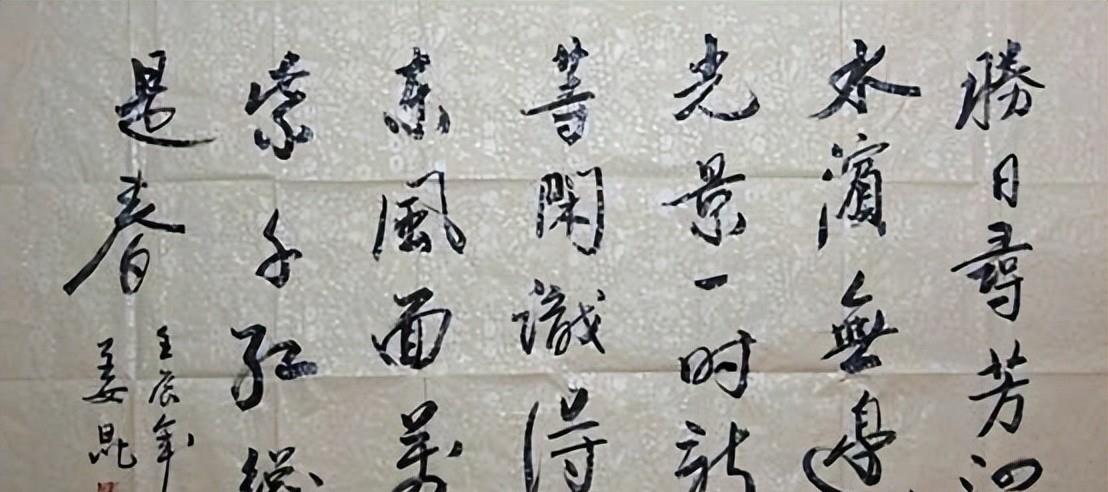 勝日尋芳泗
水濱無邊
光景一时新
等閑識得
東風面萬
紫千红總
是春
壬辰年
姜